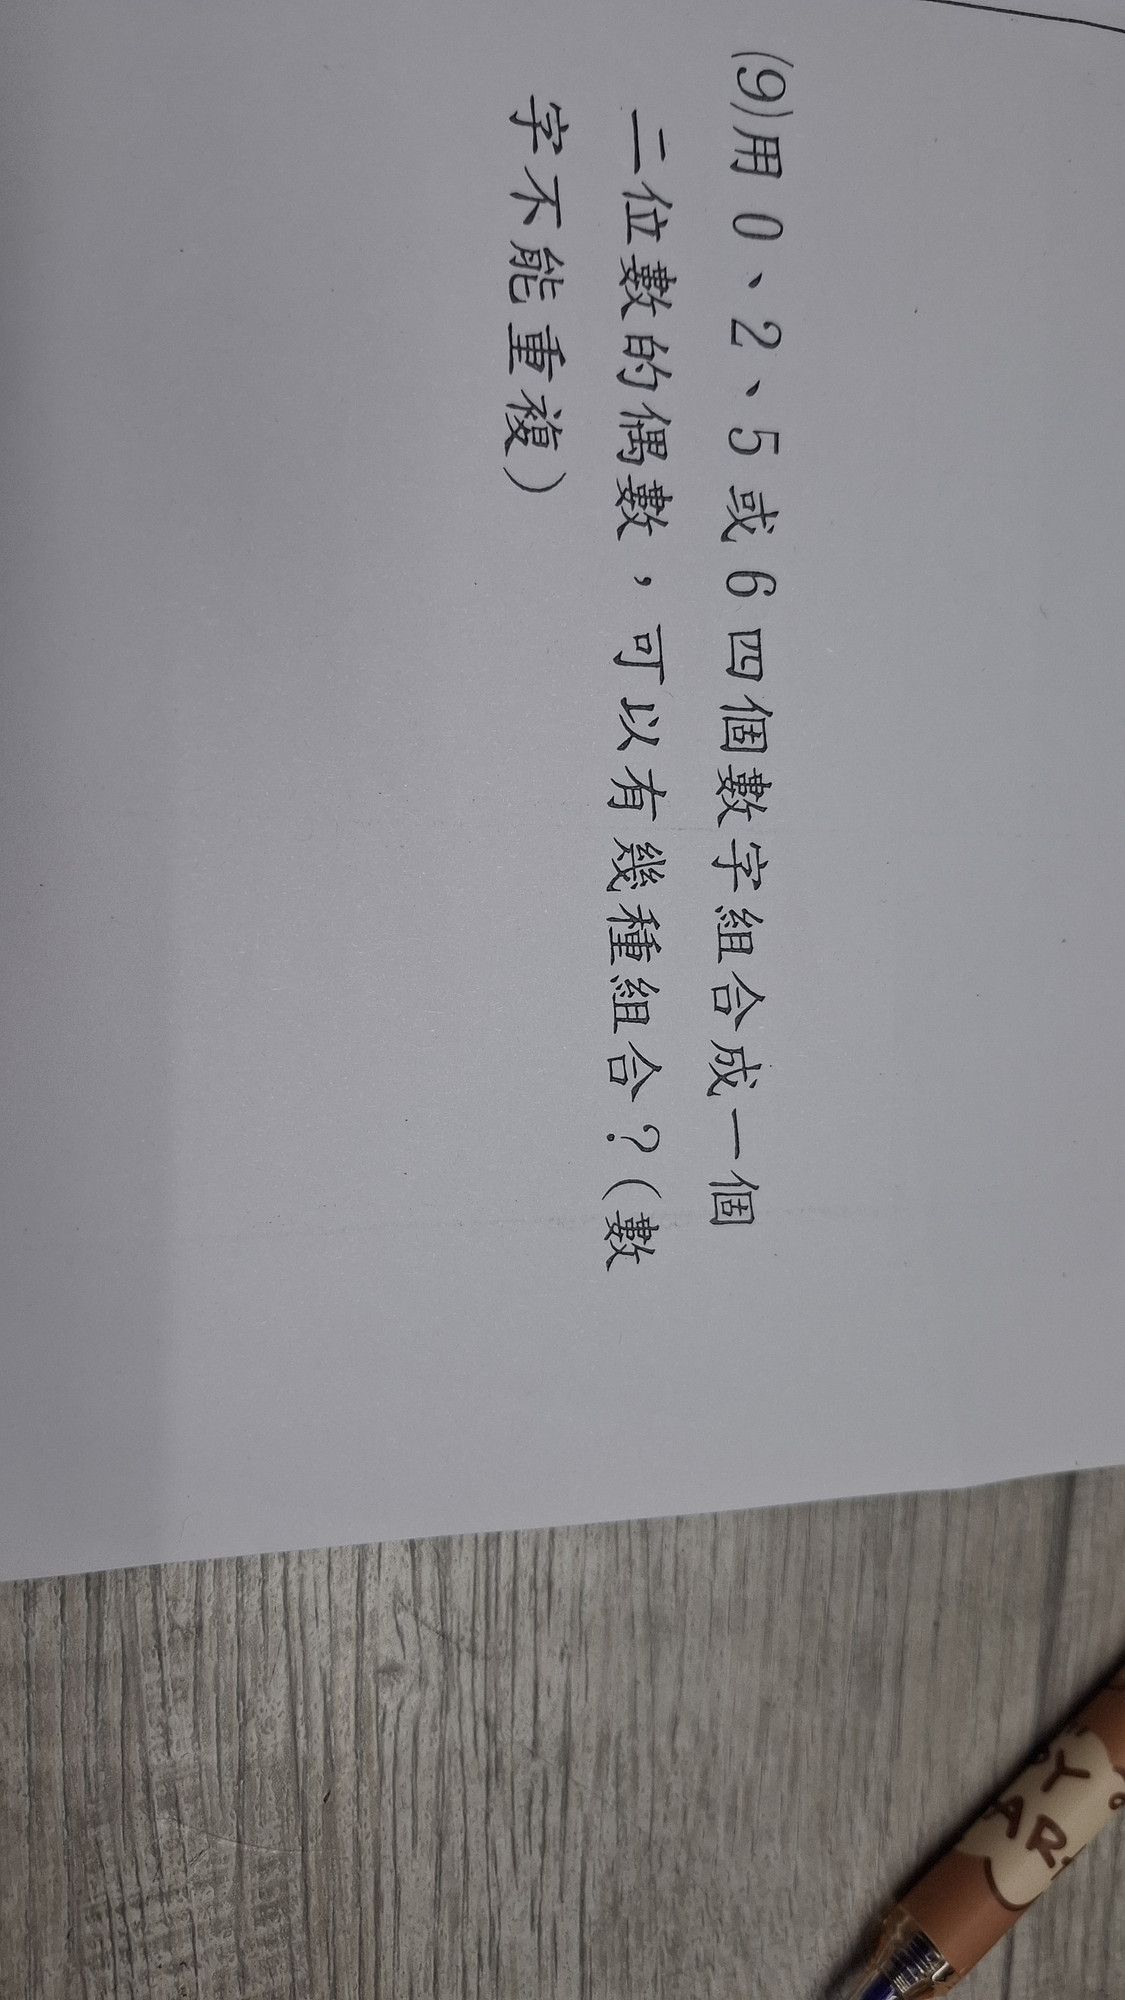 (9)用0、2、5或6四個數字組合成一個
二位數的偶數，可以有幾種組合？(數
字不能重複)